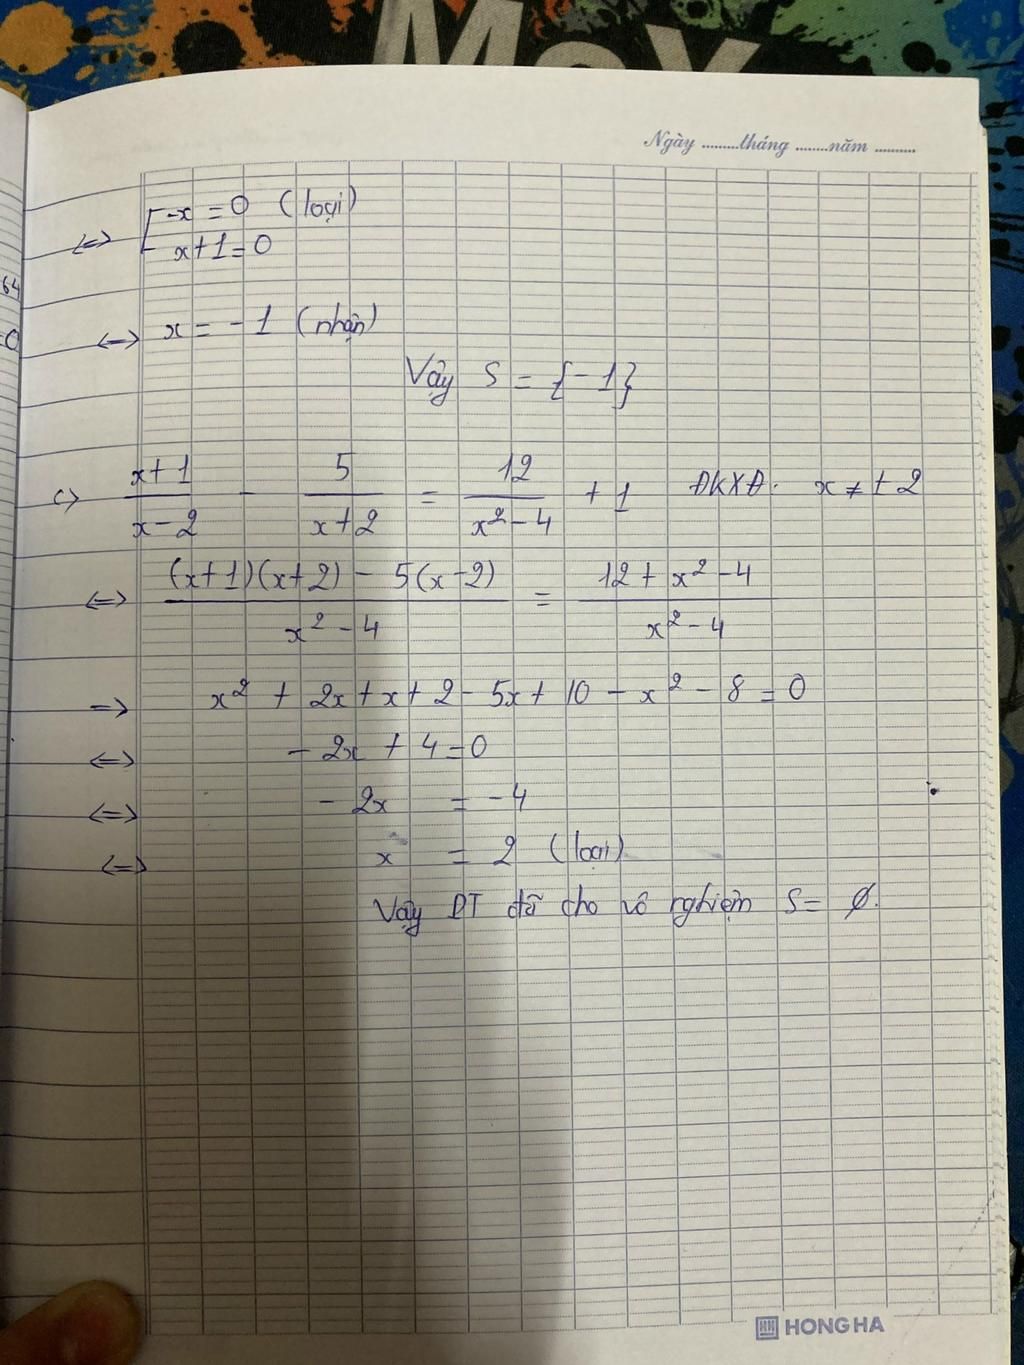 MCX
Ngày ......... tháng ........ năm ..........
64
=0
<=> [ -x = 0 (loại)
x+1=0
<=> x = -1 (nhận)
Vậy S = {-1}
c) (x+1)/(x-2) - 5/(x+2) = 12/(x²-4) + 1 ĐKXĐ: x ≠ ±2
<=> ((x+1)(x+2) - 5(x-2))/(x²-4) = (12 + x² - 4)/(x²-4)
=> x² + 2x + x + 2 - 5x + 10 - x² - 8 = 0
<=> - 2x + 4 = 0
<=> - 2x = -4
<=> x = 2 (loại)
Vậy PT đã cho vô nghiệm S = ∅.
HONG HA